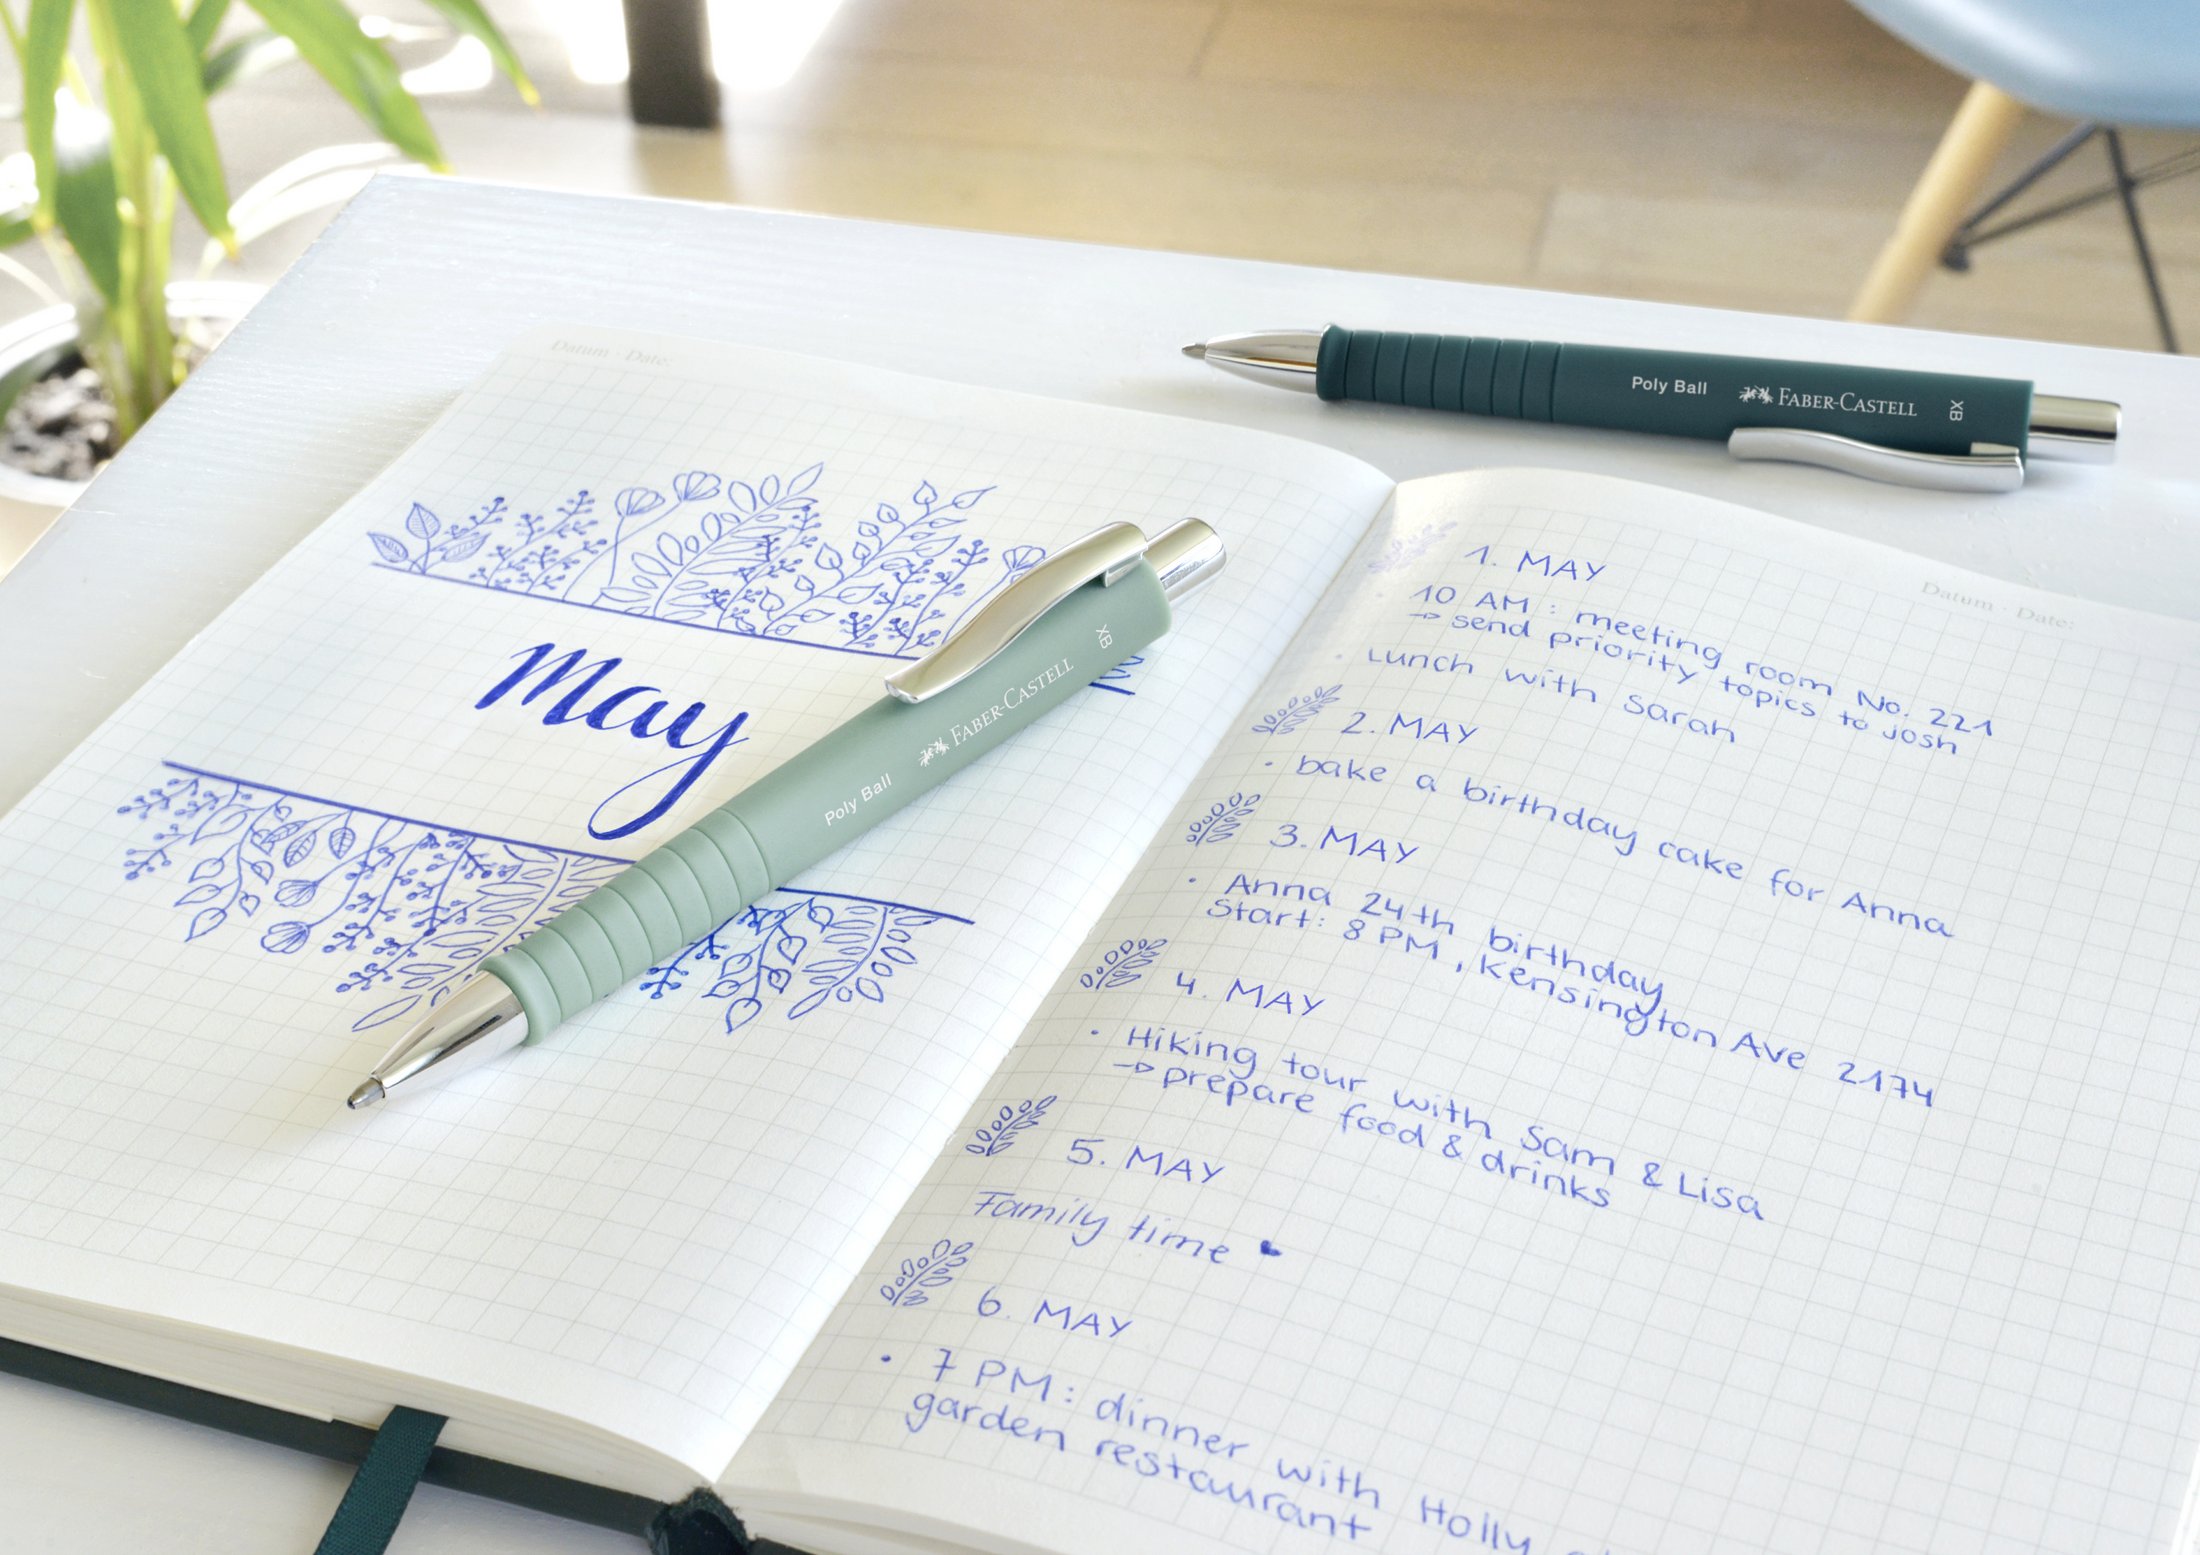 Datum · Date:
May
Poly Ball FABER-CASTELL XB
Poly Ball FABER-CASTELL XB
Datum · Date:
1. MAY
10 AM : meeting room No. 221
→ send priority topics to Josh
Lunch with Sarah
2. MAY
• bake a birthday cake for Anna
3. MAY
• Anna 24th birthday
Start: 8 PM, Kensington Ave 2174
4. MAY
• Hiking tour with Sam & Lisa
→ prepare food & drinks
5. MAY
Family time
6. MAY
• 7 PM: dinner with Holly
garden restaurant